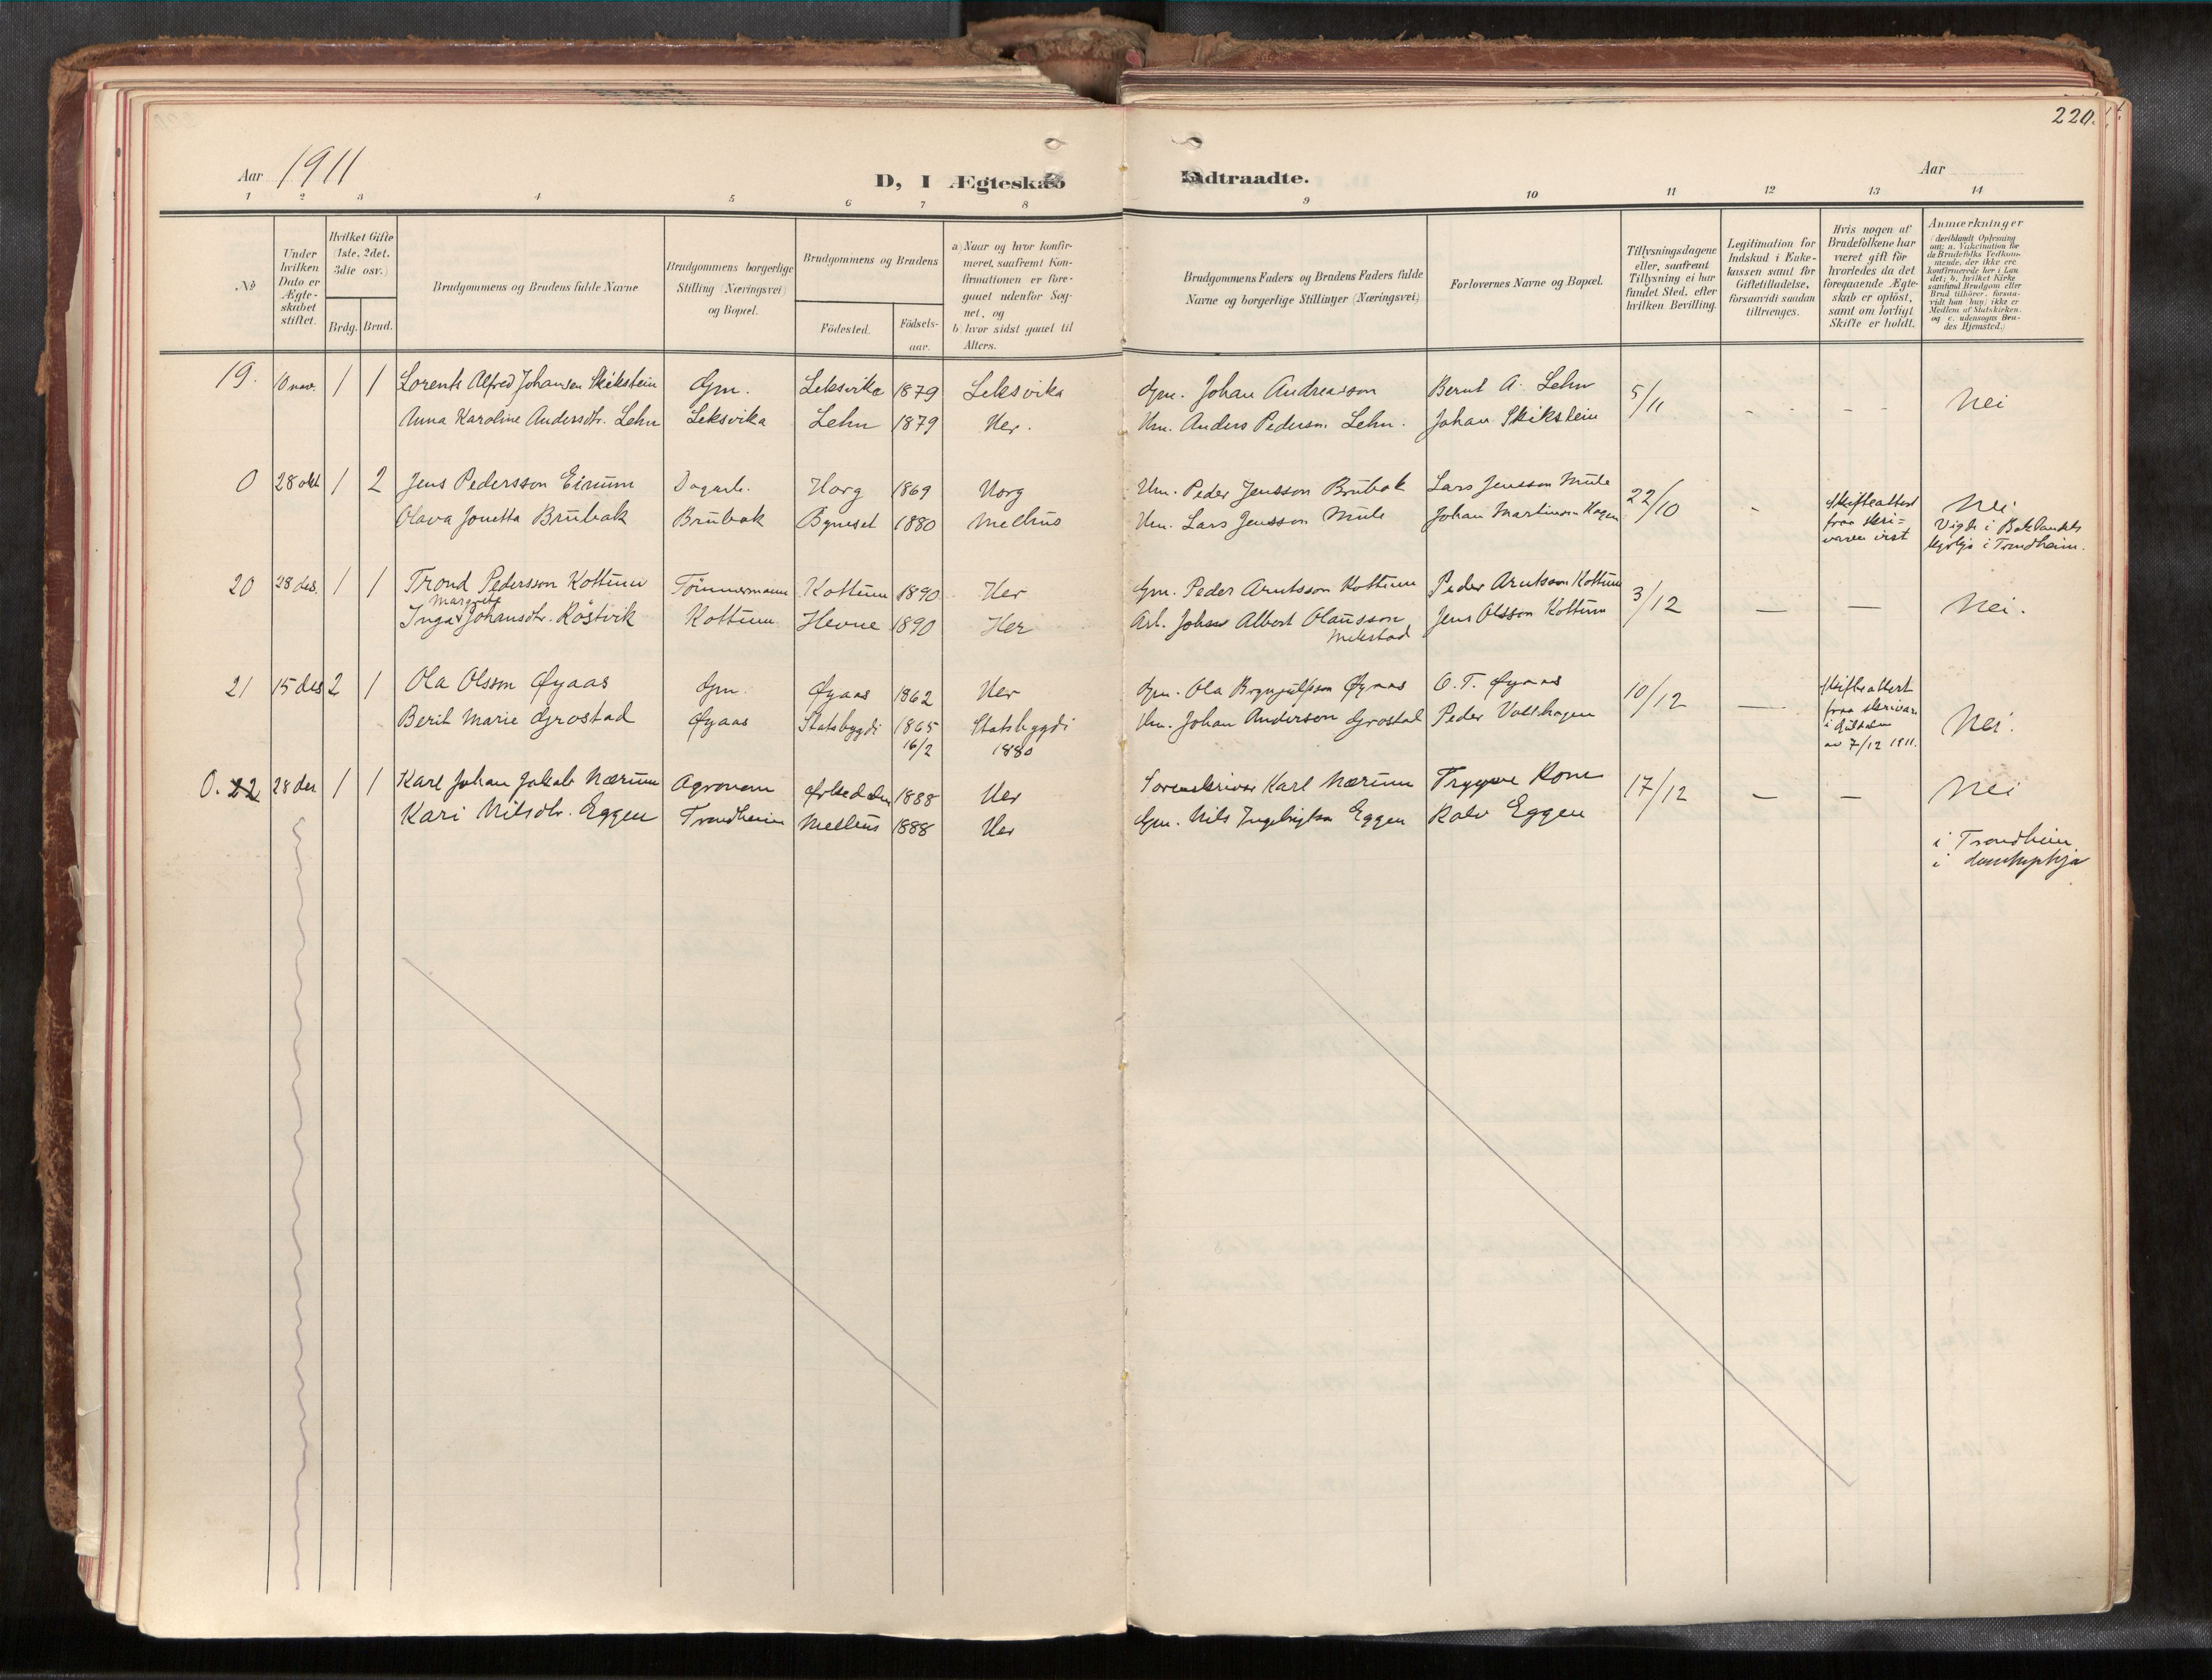 220.
Aar 1911
D, I Ægteskab Indtraadte.
Aar
1 2 3 4 5 6 7 8 9 10 11 12 13 14
No
Under hvilken Dato er Ægteskabet stiftet.
Hvilket Gifte (1ste, 2det. 3die osv.)
Brdg. Brud.
Brudgommens og Brudens fulde Navne
Brudgommens borgerlige Stilling (Næringsvei) og Bopæl.
Brudgommens og Brudens
Födested.
Födsels-aar.
a) Naar og hvor konfirmeret, saafremt Konfirmationen er foregaaet udenfor Sognet, og
b) hvor sidst gaaet til Alters.
Brudgommens Faders og Brudens Faders fulde Navne og borgerlige Stillinger (Næringsvei)
Forlovernes Navne og Bopæl.
Tillysningsdagene eller, saafremt Tillysning ei har fundet Sted, efter hvilken Bevilling.
Legitimation for Indskud i Enkekassen samt for Giftetilladelse, forsaavidt saadan tiltrænges.
Hvis nogen af Brudefolkene har været gift för hvorledes da det foregaaende Ægteskab er oplöst, samt om lovligt Skifte er holdt.
Anmærkninger
(deriblandt Oplysning om: a. Vakcination for de Brudefolks Vedkommende, der ikke ere konfirmerede her i Landet; b. hvilket Kirkesamfund Brudgom eller Brud tilhører, forsaavidt han (hun) ikke er Medlem af Statskirken. og c. udensogns Brudes Hjemsted.)
19. 10 nov. 1 1 Lorents Alfred Johansen Skikstein Gm. Leksvika 1879 Leksvika Gm. Johan Andreasson Bernt A. Lehn 5/11 - - - - Nei
Anna Karoline Andersdtr. Lehn Leksvika Lehn 1879 Her. Hm. Anders Pederson Lehn. Johan Skikstein
0 28 okt 1 2 Jens Pedersson Eirum Dagarb. Horg 1869 Horg Hm. Peder Jensson Brubak Lars Jensson Mule 22/10 - Skifteattest Nei.
Olava Jonetta Brubak Brubak Byneset 1880 Melhus Hm. Lars Jensson Mule Johan Martinsen Hagen fraa skri= Vigde i Baklandets
varen vist kyrkje i Trondheim.
20 28 des. 1 1 Trond Pedersson Kottum Tømmermann Kottum 1890 Her Gm. Peder Arntsson Kottum Peder Arntsson Kottum 3/12 — — Nei.
Margrete
Inga Johansdtr. Röstvik Kottum Hevne 1890 Her Arb. Johan Albert Olausson Jens Olsson Kottum
Mekstad
21 15 des 2 1 Ola Olsson Øyaas Gm. Øyaas 1862 Her Gm. Ola Brynjulfson Øyaas O. T. Øyaas 10/12 — Skifteattest
Berit Marie Grostad Øyaas Statsbygdi 1865 Statsbygdi Hm. Johan Anderson Grostad Peder Volthagen fraa skrivar Nei.
16/2 1880 av 7/12 1911.
0. 22 28 des 1 1 Karl Johan Jakob Nærum Agronom 1888 Her Sorenskrivar Karl Nærum Trygve Rom 17/12 — — Nei
Kari Nilsdtr. Eggen Trondheim Melhus 1888 Her Gm. Nils Ingebrigtson Eggen Rolv Eggen
i Trondheim
i domkyrkja